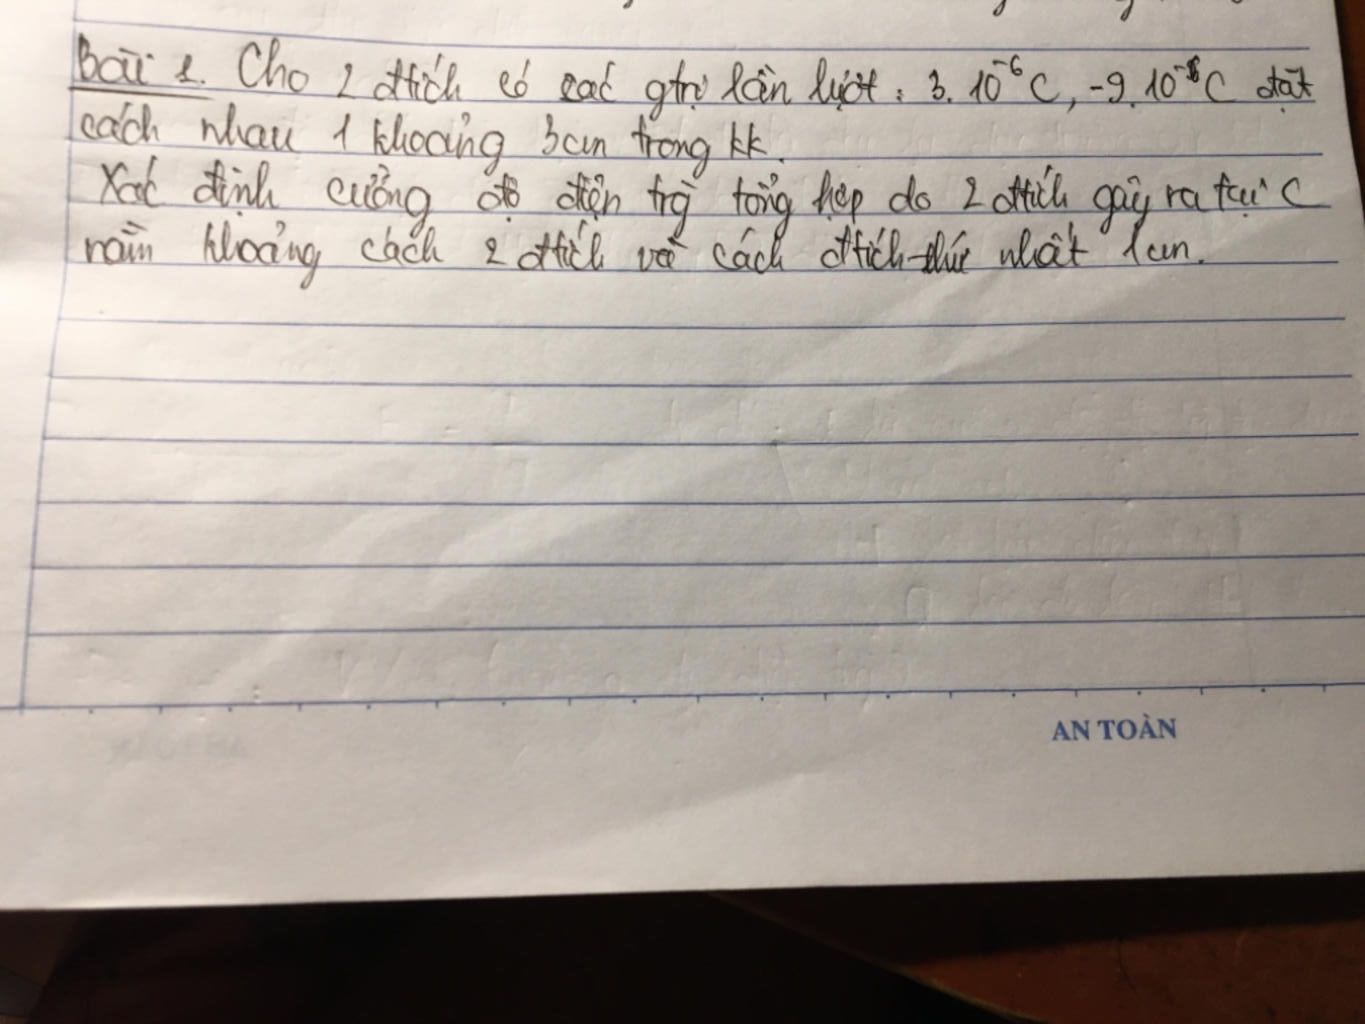 Bài 1. Cho 2 đtích có các gtrị lần lượt: 3. 10⁻⁶C, -9. 10⁻⁸C đặt
cách nhau 1 khoảng 3cm trong kk.
Xác định cường độ điện trg tổng hợp do 2 đtích gây ra tại C
nằm khoảng cách 2 đtích và cách đtích thứ nhất 1cm.
AN TOÀN